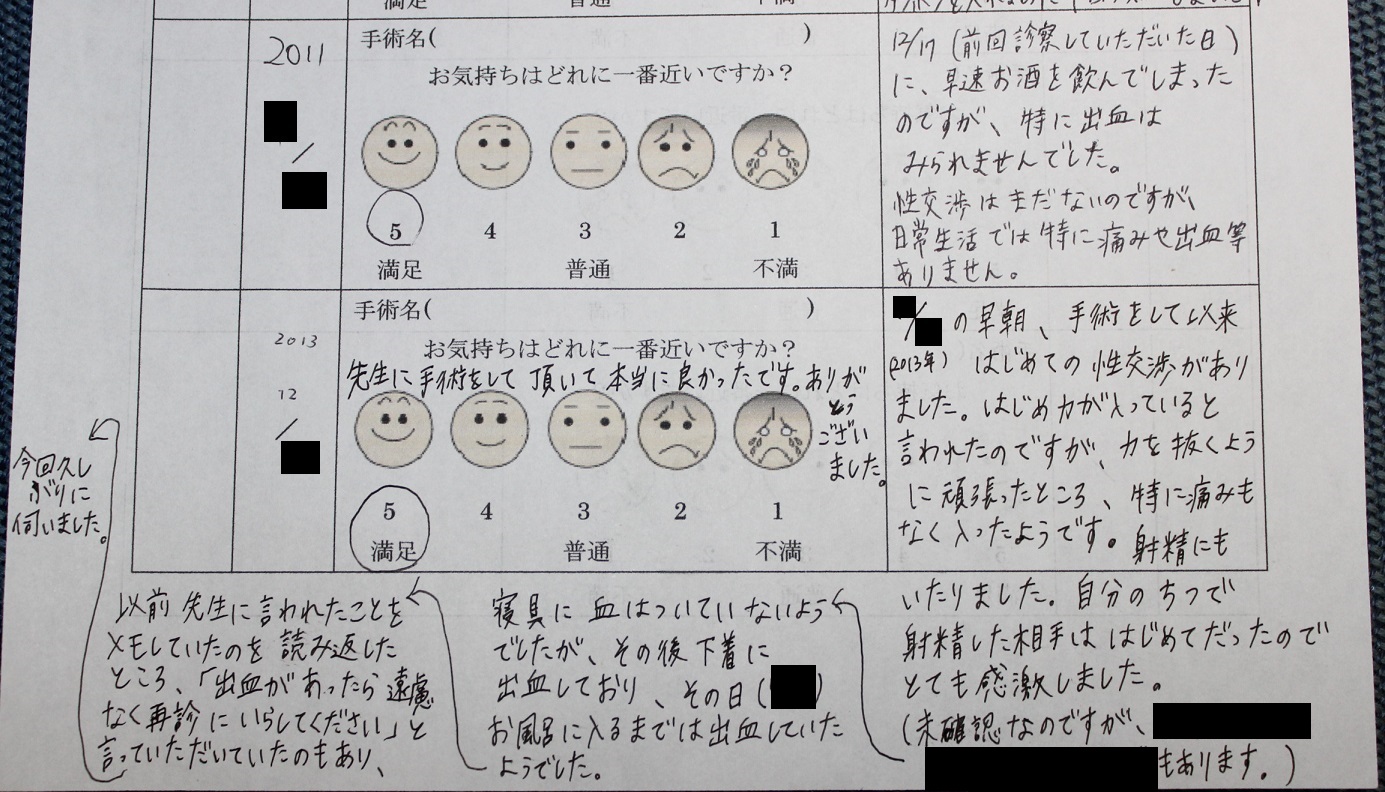 満足 普通 不満
2011
/
手術名( )
お気持ちはどれに一番近いですか？
5 4 3 2 1
満足 普通 不満
12/17 (前回診察していただいた日)
に、早速お酒を飲んでしまった
のですが、特に出血は
みられませんでした。
性交渉はまだないのですが、
日常生活では特に痛みや出血等
ありません。
2013
12
/
手術名( )
お気持ちはどれに一番近いですか？
先生に手術をして頂いて本当に良かったです。ありが
とう
ござい
ました。
5 4 3 2 1
満足 普通 不満
/ の早朝、手術をして以来
(2013年) はじめての性交渉があり
ました。はじめ力が入っていると
言われたのですが、力を抜くよう
に頑張ったところ、特に痛みも
なく入ったようです。射精にも
いたりました。自分のちつで
射精した相手ははじめてだったので
とても感激しました。
(未確認なのですが、
もあります。)
寝具に血はついていないよう
でしたが、その後下着に
出血しており、その日( )
お風呂に入るまでは出血していた
ようでした。
以前先生に言われたことを
メモしていたのを読み返した
ところ、「出血があったら遠慮
なく再診にいらしてください」と
言っていただいていたのもあり、
今回久し
ぶりに
伺いました。